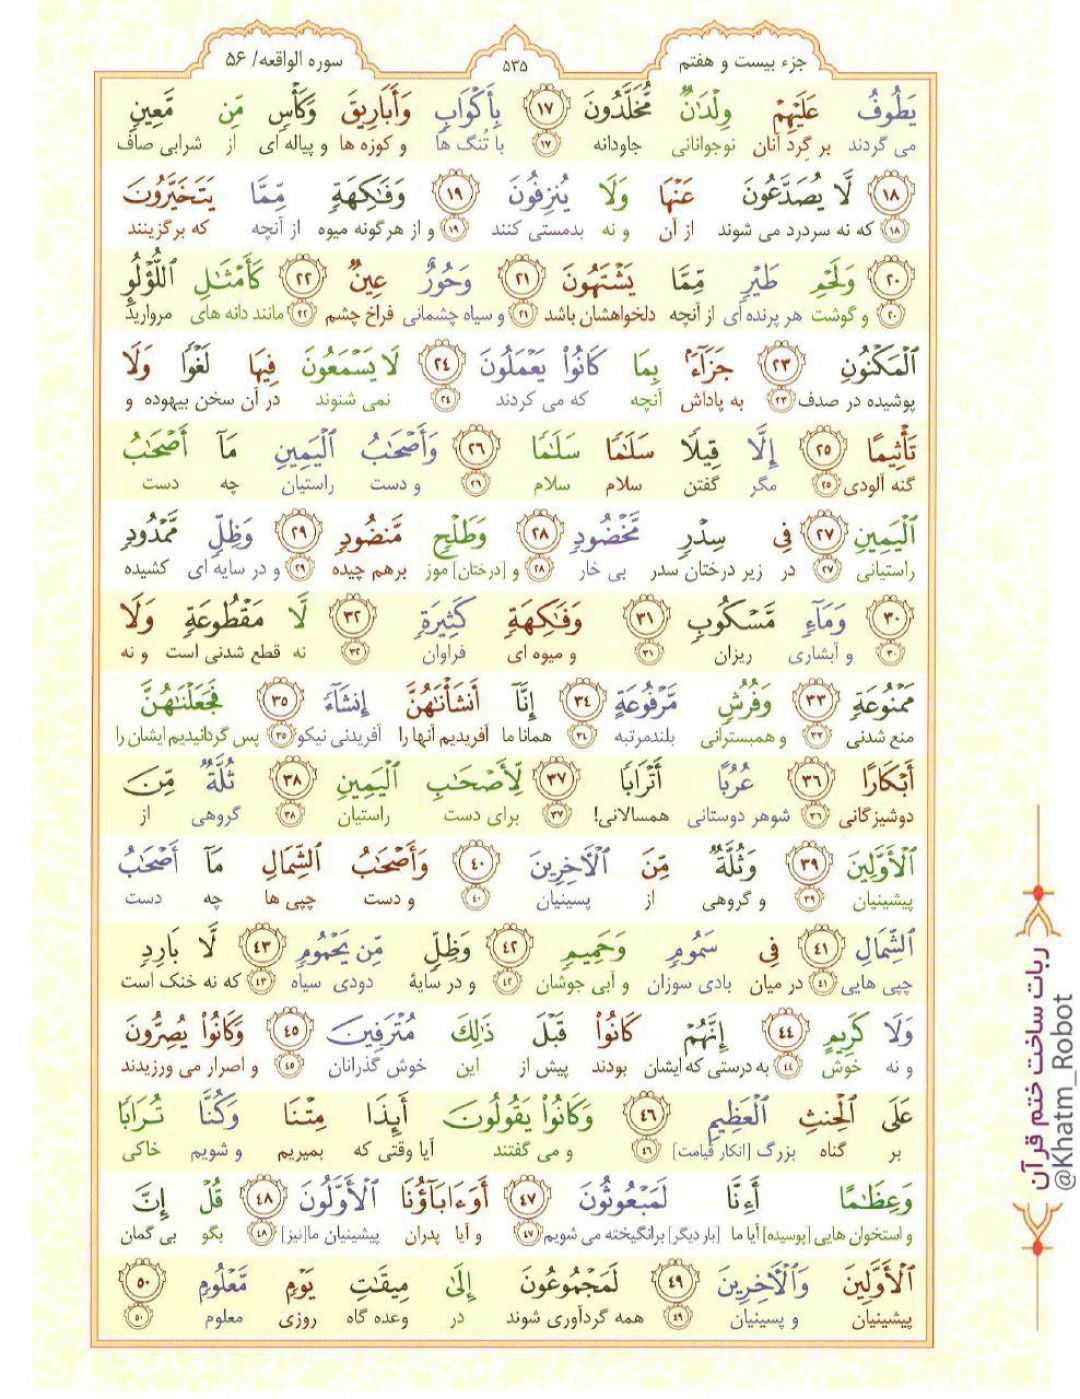 جزء بیست و هفتم
۵۳۵
سوره الواقعه/ ۵۶
يَطُوفُ عَلَيْهِمْ وِلْدَٰنٌ مُّخَلَّدُونَ ١٧ بِأَكْوَابٍ وَأَبَارِيقَ وَكَأْسٍ مِّن مَّعِينٍ
می گردند بر گرد آنان نوجوانانی جاودانه ١٧ با تُنگ ها و کوزه ها و پیاله ای از شرابی صاف
١٨ لَّا يُصَدَّعُونَ عَنْهَا وَلَا يُنزِفُونَ ١٩ وَفَٰكِهَةٍ مِّمَّا يَتَخَيَّرُونَ
١٨ که نه سردرد می شوند از آن و نه بدمستی کنند ١٩ و از هرگونه میوه از آنچه که برگزینند
٢٠ وَلَحْمِ طَيْرٍ مِّمَّا يَشْتَهُونَ ٢١ وَحُورٌ عِينٌ ٢٢ كَأَمْثَٰلِ اللُّؤْلُؤِ
٢٠ و گوشت هر پرنده ای از آنچه دلخواهشان باشد ٢١ و سیاه چشمانی فراخ چشم ٢٢ مانند دانه های مروارید
الْمَكْنُونِ ٢٣ جَزَآءً بِمَا كَانُوا۟ يَعْمَلُونَ ٢٤ لَا يَسْمَعُونَ فِيهَا لَغْوًا وَلَا
پوشیده در صدف ٢٣ به پاداش آنچه که می کردند ٢٤ نمی شنوند در آن سخن بیهوده و
تَأْثِيمًا ٢٥ إِلَّا قِيلًا سَلَٰمًا سَلَٰمًا ٢٦ وَأَصْحَٰبُ الْيَمِينِ مَآ أَصْحَٰبُ
گنه آلودی ٢٥ مگر گفتن سلام سلام ٢٦ و دست راستیان چه دست
الْيَمِينِ ٢٧ فِى سِدْرٍ مَّخْضُودٍ ٢٨ وَطَلْحٍ مَّنضُودٍ ٢٩ وَظِلٍّ مَّمْدُودٍ
راستیانی ٢٧ در زیر درختان سدر بی خار ٢٨ و [درختان] موز برهم چیده ٢٩ و در سایه ای کشیده
٣٠ وَمَآءٍ مَّسْكُوبٍ ٣١ وَفَٰكِهَةٍ كَثِيرَةٍ ٣٢ لَّا مَقْطُوعَةٍ وَلَا
٣٠ و آبشاری ریزان ٣١ و میوه ای فراوان ٣٢ نه قطع شدنی است و نه
مَمْنُوعَةٍ ٣٣ وَفُرُشٍ مَّرْفُوعَةٍ ٣٤ إِنَّآ أَنشَأْنَٰهُنَّ إِنشَآءً ٣٥ فَجَعَلْنَٰهُنَّ
منع شدنی ٣٣ و همبسترانی بلندمرتبه ٣٤ همانا ما آفریدیم آنها را آفریدنی نیکو ٣٥ پس گردانیدیم ایشان را
أَبْكَارًا ٣٦ عُرُبًا أَتْرَابًا ٣٧ لِّأَصْحَٰبِ الْيَمِينِ ٣٨ ثُلَّةٌ مِّنَ
دوشیزگانی ٣٦ شوهر دوستانی همسالانی! ٣٧ برای دست راستیان ٣٨ گروهی از
الْأَوَّلِينَ ٣٩ وَثُلَّةٌ مِّنَ الْأَخِرِينَ ٤٠ وَأَصْحَٰبُ الشِّمَالِ مَآ أَصْحَٰبُ
پیشینیان ٣٩ و گروهی از پسینیان ٤٠ و دست چپی ها چه دست
الشِّمَالِ ٤١ فِى سَمُومٍ وَحَمِيمٍ ٤٢ وَظِلٍّ مِّن يَحْمُومٍ ٤٣ لَّا بَارِدٍ
چپی هایی ٤١ در میان بادی سوزان و آبی جوشان ٤٢ و در سایهٔ دودی سیاه ٤٣ که نه خنک است
وَلَا كَرِيمٍ ٤٤ إِنَّهُمْ كَانُوا۟ قَبْلَ ذَٰلِكَ مُتْرَفِينَ ٤٥ وَكَانُوا۟ يُصِرُّونَ
و نه خوش ٤٤ به درستی که ایشان بودند پیش از این خوش گذرانان ٤٥ و اصرار می ورزیدند
عَلَى الْحِنثِ الْعَظِيمِ ٤٦ وَكَانُوا۟ يَقُولُونَ أَىِٕذَا مِتْنَا وَكُنَّا تُرَابًا
بر گناه بزرگ [انکار قیامت] ٤٦ و می گفتند آیا وقتی که بمیریم و شویم خاکی
وَعِظَٰمًا أَءِنَّا لَمَبْعُوثُونَ ٤٧ أَوَءَابَآؤُنَا الْأَوَّلُونَ ٤٨ قُلْ إِنَّ
و استخوان هایی [پوسیده] آیا ما [بار دیگر] برانگیخته می شویم ٤٧ و آیا پدران پیشینیان ما[نیز] ٤٨ بگو بی گمان
الْأَوَّلِينَ وَالْأَخِرِينَ ٤٩ لَمَجْمُوعُونَ إِلَىٰ مِيقَٰتِ يَوْمٍ مَّعْلُومٍ ٥٠
پیشینیان و پسینیان ٤٩ همه گردآوری شوند در وعده گاه روزی معلوم ٥٠
ربات ساخت ختم قرآن
@Khatm_Robot